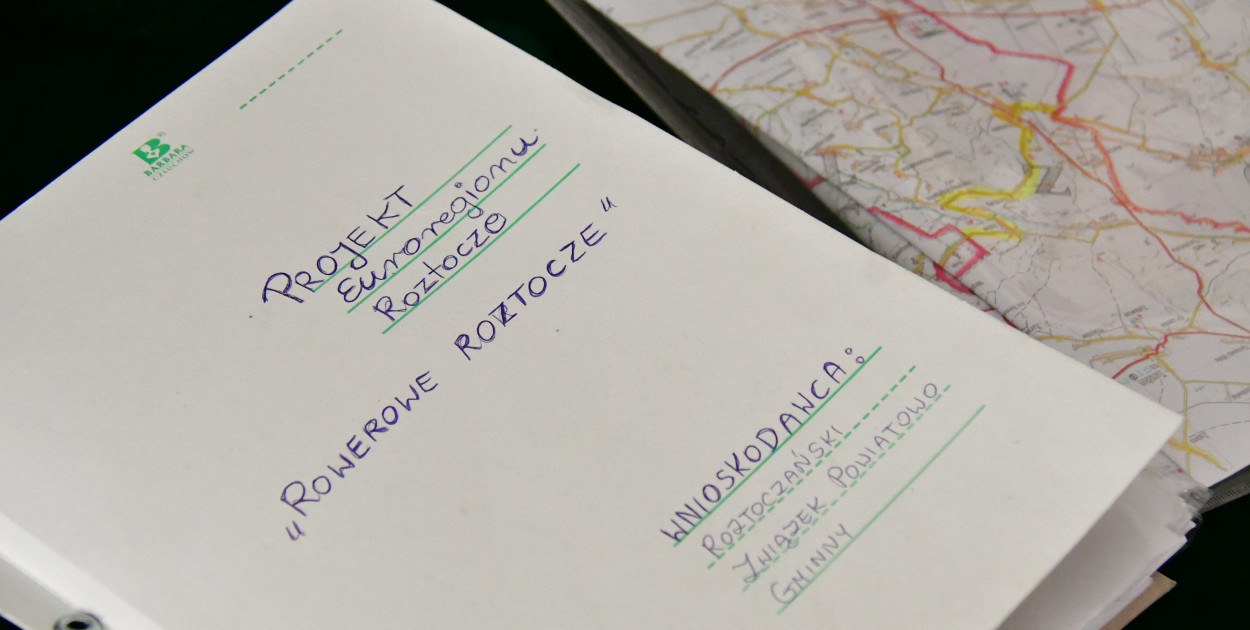 BARBARA
CZŁUCHÓW
PROJEKT
Euroregionu
Roztocze
„ROWEROWE ROZTOCZE"
WNIOSKODAWCA:
ROZTOCZAŃSKI
ZWIĄZEK POWIATOWO
GMINNY